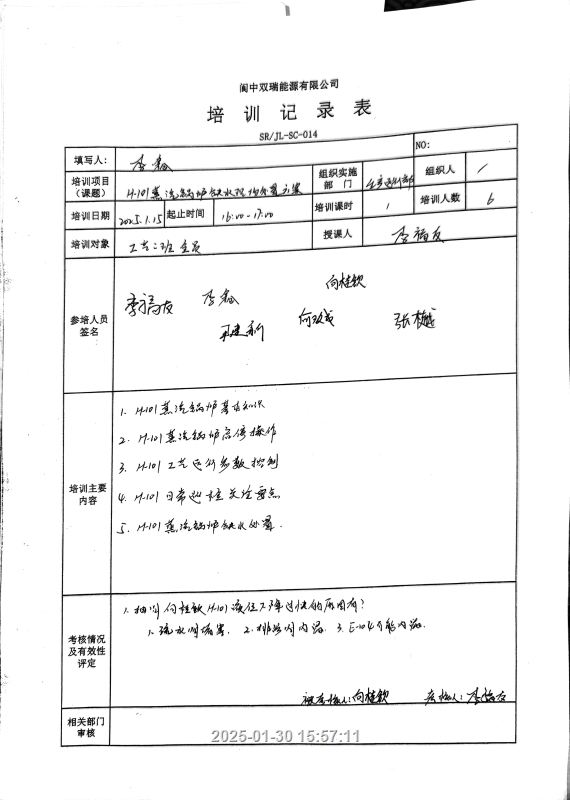 阆中双瑞能源有限公司
培训记录表
SR/JL-SC-014
填写人： 李鑫 NO:
培训项目（课题） H-101蒸汽锅炉缺水现场处置方案 组织实施部门 生产运行部 组织人 /
培训日期 2025.1.15 起止时间 16:00-17:00 培训课时 1 培训人数 6
培训对象 工艺二班全员 授课人 李福友
参培人员签名
向桂钦
李福友 李鑫
张樾
培训主要内容
1. H-101蒸汽锅炉基本知识
2. H-101蒸汽锅炉启停操作
3. H-101工艺运行参数控制
4. H-101日常巡检关注要点
5. H-101蒸汽锅炉缺水处置.
考核情况及有效性评定
1. 抽问向桂钦H-101液位下降过快的原因有？
1. 疏水阀堵塞. 2. 排污阀内漏. 3. E-104可能内漏.
被考核人：向桂钦 考核人：李福友
相关部门审核
2025-01-30 15:57:11